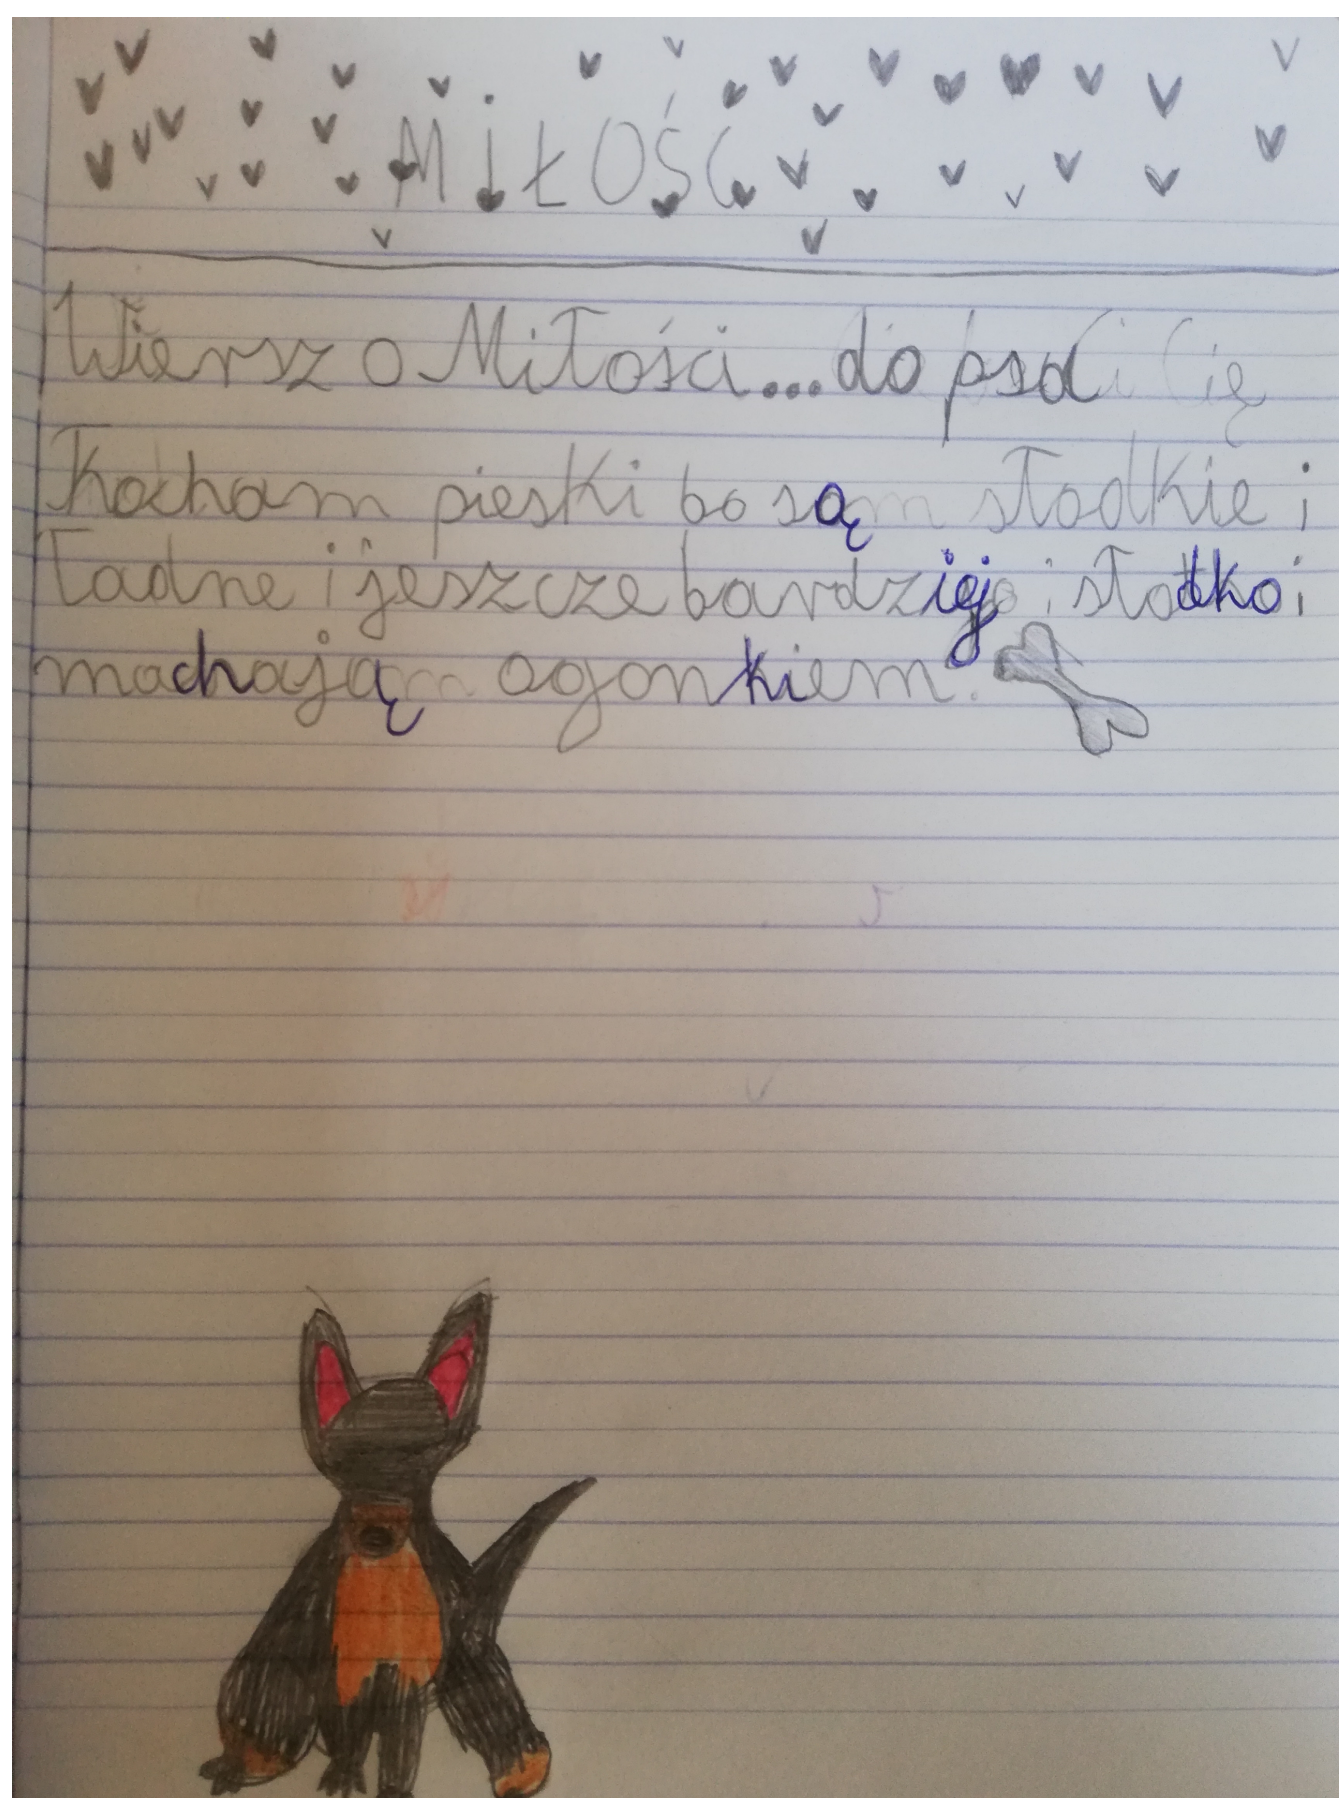 MiŁOŚĆ
Wiersz o Miłości...do psa
Kocham pieski bo są słodkie i
Ładne i jeszcze bardziej i słodko i
machają ogonkiem.